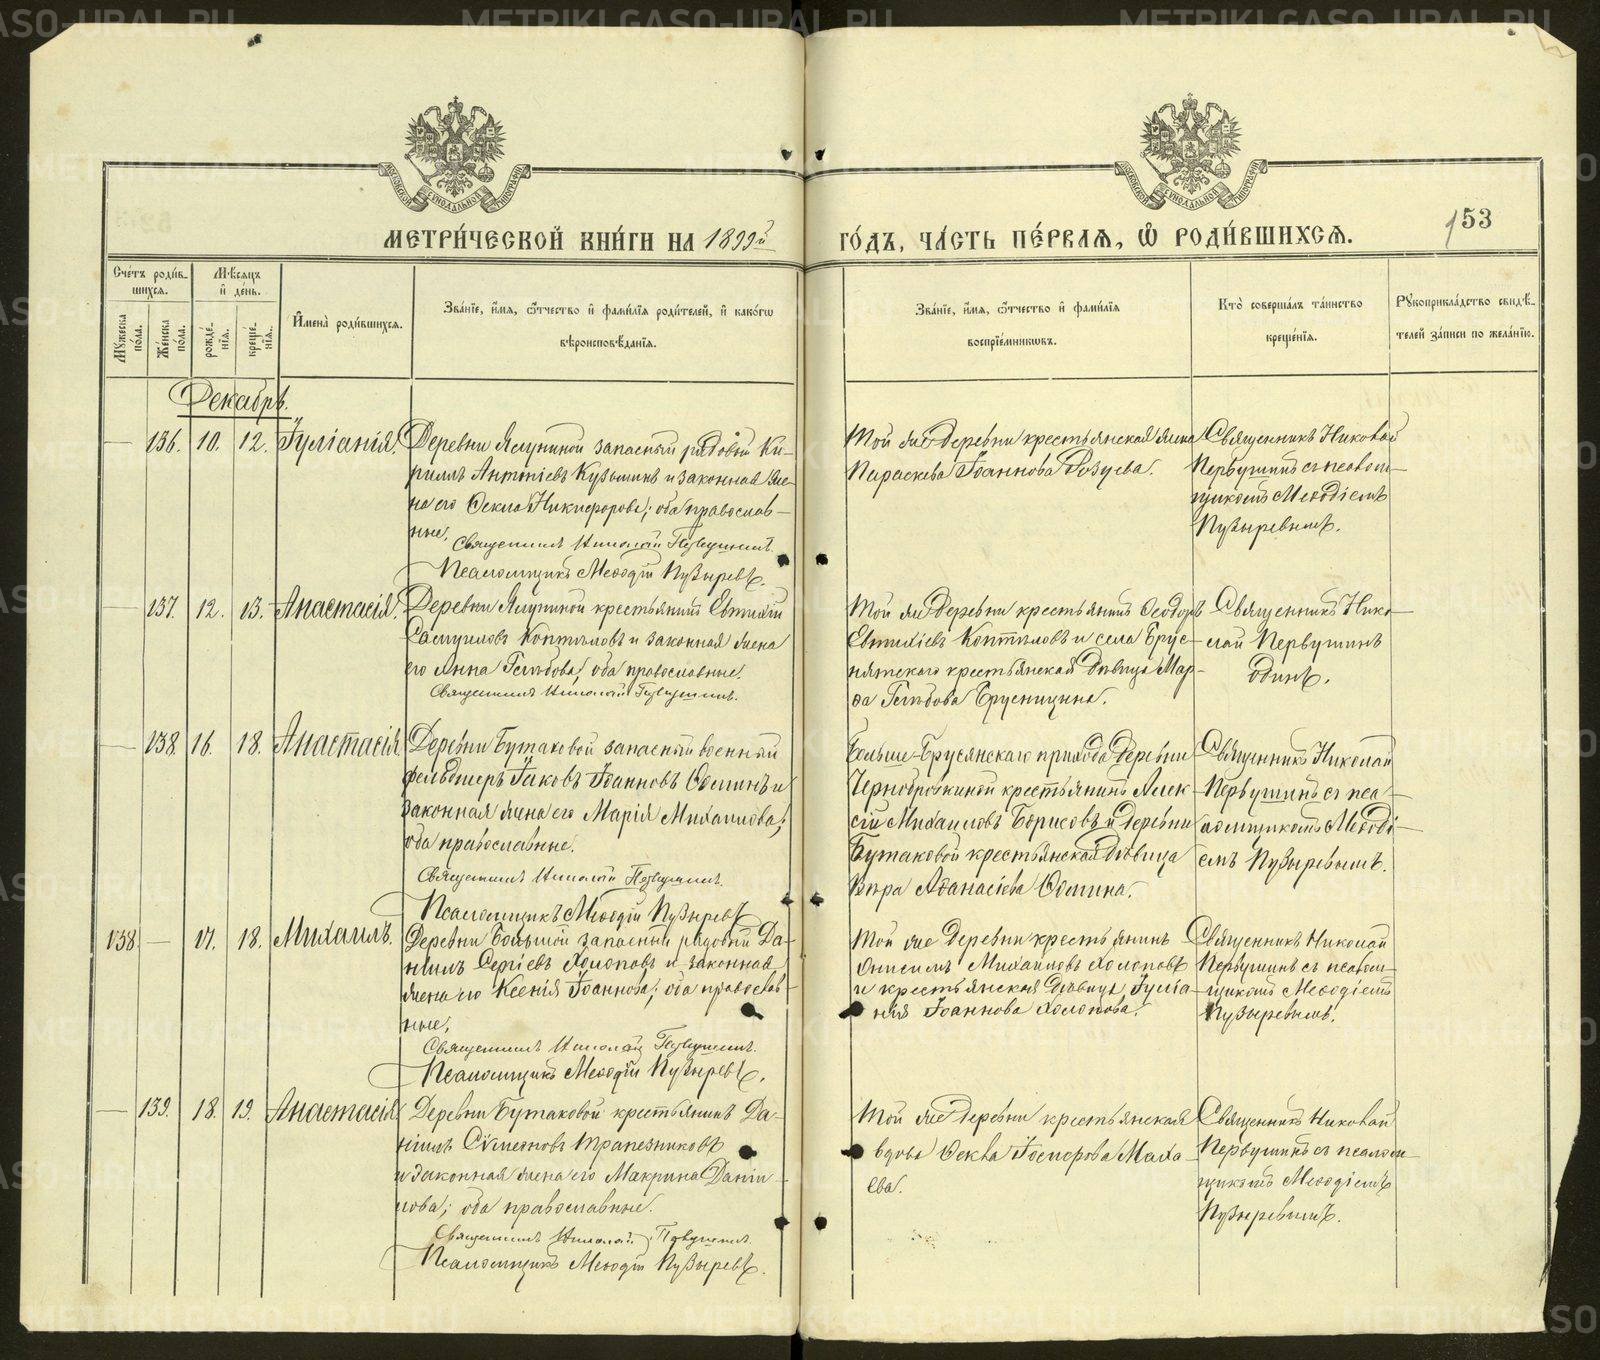 МЕТРИ́ЧЕСКОЙ КНИ́ГИ НА 1899й
ГО́ДЪ, ЧА́СТЬ ПЕ́РВАЯ, Ѽ РОДИ́ВШИХСЯ.
153
Сче́тъ роди́в-
шихся.
Мѣ́сяцъ
и҆ де́нь.
И҆мена̀ роди́вшихся.
Зва́нїе, и҆́мя, ѻ҆́тчество и҆ фами́лїя роди́телей, и҆ како́гѡ
вѣроисповѣ́данїя.
Му́жеска
по́ла.
Же́нска
по́ла.
рожде́-
нїя.
креще́-
нїя.
Зва́нїе, и҆́мя, ѻ҆́тчество и҆ фами́лїя
воспрїе́мникѡвъ.
Кто̀ соверша́лъ та́инство
креще́нїя.
Рꙋкоприкла́дство свидѣ́-
телей за́писи по жела́нїю.
Декабрь.
— 136. 10. 12. Іуліанія.
Деревни Ялуниной запасный рядовый Ки-
риллъ Антоніевъ Кузьминъ и законная же-
на его Ѳекла Никифорова; оба православ-
ные.
Священникъ Николай Первушинъ.
Псаломщикъ Меѳодій Пузыревъ.
Той же деревни крестьянская жена
Параскева Іоаннова Розуева.
Священникъ Николай
Первушинъ съ псалом-
щикомъ Меѳодіемъ
Пузыревымъ.
— 137. 12. 13. Анастасія.
Деревни Ялуниной крестьянинъ Евтихій
Самуиловъ Коптяловъ и законная жена
его Анна Глѣбова; оба православные.
Священникъ Николай Первушинъ.
Той же деревни крестьянинъ Ѳеодоръ
Евтихіевъ Коптяловъ и села Брус-
нятскаго крестьянская дѣвица Мар-
ѳа Глѣбова Брусницина.
Священникъ Нико-
лай Первушинъ
одинъ.
— 138. 16. 18. Анастасія
Деревни Бутаковой запасный военный
фельдшеръ Іаковъ Іоанновъ Ѳоминъ и
законная жена его Марія Михаилова;
оба православные.
Священникъ Николай Первушинъ.
Псаломщикъ Меѳодій Пузыревъ
Больше-Брусянскаго прихода деревни
Чернобровкиной крестьянинъ Алек-
сій Михаиловъ Борисовъ и деревни
Бутаковой крестьянская дѣвица
Вѣра Аѳанасіева Ѳомина.
Священникъ Николай
Первушинъ съ пса-
ломщикомъ Меѳоді-
емъ Пузыревымъ.
138. — 17. 18. Михаилъ.
Деревни Большой запасный рядовый Да-
ніилъ Сергіевъ Холоповъ и законная
жена его Ксенія Іоаннова; оба православ-
ные.
Священникъ Николай Первушинъ.
Псаломщикъ Меѳодій Пузыревъ.
Той же деревни крестьянинъ
Онисимъ Михаиловъ Холоповъ
и крестьянская дѣвица Іуліа-
нія Іоаннова Холопова.
Священникъ Николай
Первушинъ съ псалом-
щикомъ Меѳодіемъ
Пузыревымъ.
— 139. 18. 19. Анастасія
Деревни Бутаковой крестьянинъ Да-
ніилъ Симеоновъ Трапезниковъ
и законная жена его Макрина Даніи-
лова; оба православные.
Священникъ Николай Первушинъ.
Псаломщикъ Меѳодій Пузыревъ.
Той же деревни крестьянская
вдова Ѳекла
Священникъ Николай
Первушинъ съ псалом-
щикомъ Меѳодіемъ
Пузыревымъ.
METRIKI.GASO-URAL.RU